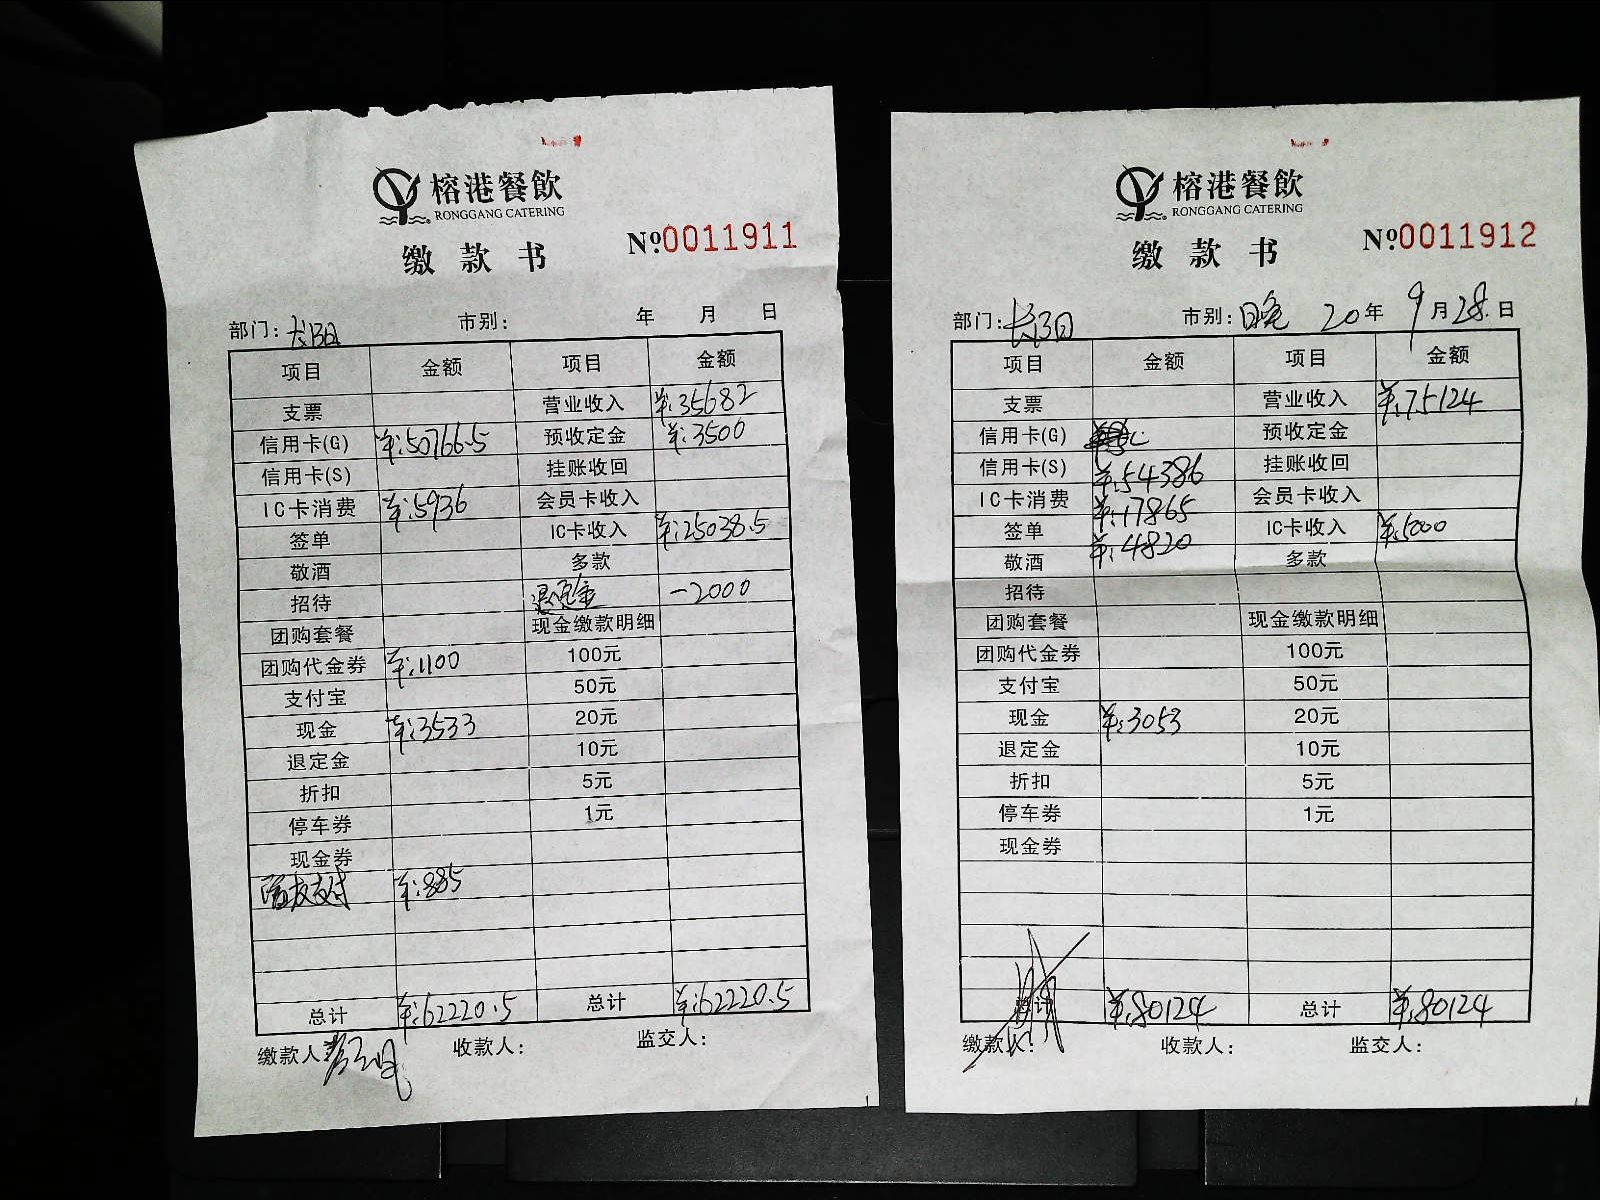 榕港餐飲
RONGGANG CATERING
缴款书
№0011911
部门: 长阳 市别: 年 月 日
项目 金额 项目 金额
支票 营业收入 ¥:35682
信用卡(G) ¥:50766.5 预收定金 ¥:3500
信用卡(S) 挂账收回
IC卡消费 ¥:5936 会员卡收入
签单 IC卡收入 ¥:25038.5
敬酒 多款
招待 退定金 -2000
团购套餐 现金缴款明细
团购代金券 ¥:1100 100元
支付宝 50元
现金 ¥:3533 20元
退定金 10元
折扣 5元
停车券 1元
现金券
支付 ¥:885
总计 ¥:62220.5 总计 ¥:62220.5
缴款人 收款人: 监交人:
榕港餐飲
RONGGANG CATERING
缴款书
№0011912
部门: 长阳 市别: 晚 20年 9月28日
项目 金额 项目 金额
支票 营业收入 ¥:75124
信用卡(G) 预收定金
信用卡(S) ¥:54386 挂账收回
IC卡消费 ¥:17865 会员卡收入
签单 ¥:4820 IC卡收入 ¥:5000
敬酒 多款
招待
团购套餐 现金缴款明细
团购代金券 100元
支付宝 50元
现金 ¥:3053 20元
退定金 10元
折扣 5元
停车券 1元
现金券
总计 ¥:80124 总计 ¥:80124
缴款人: 收款人: 监交人: